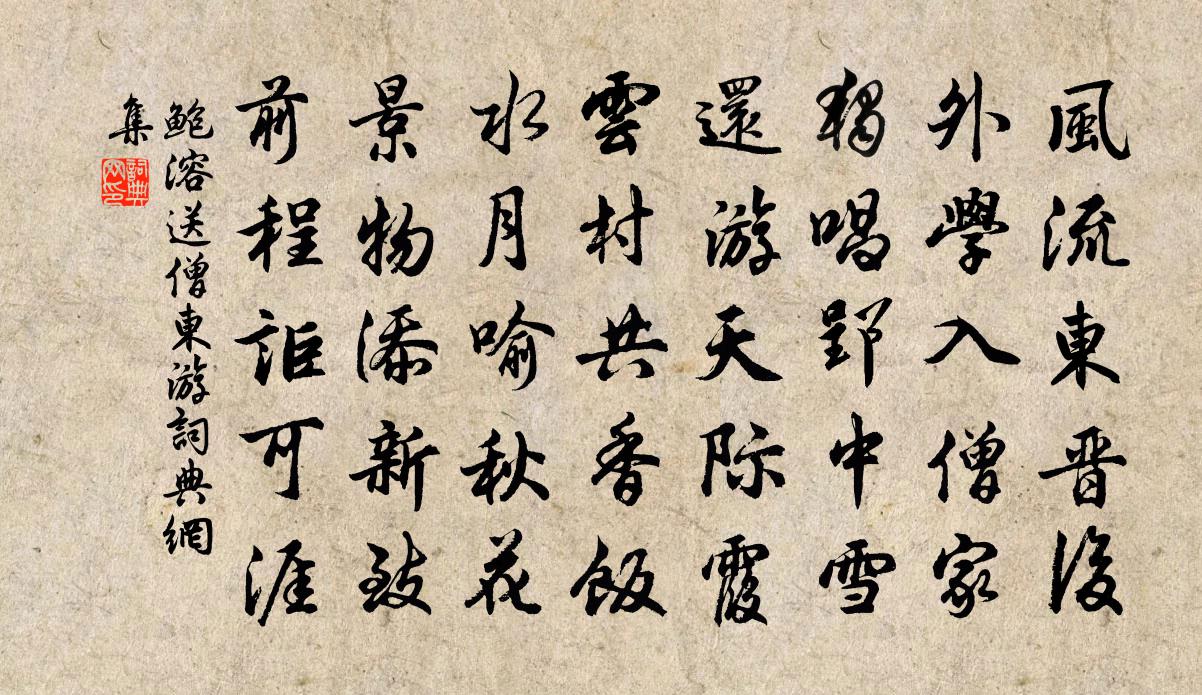 風流東晉後
外學入僧家
獨唱郢中雪
還游天际霞
雲村共香飯
水月喻秋花
景物添新致
前程詎可涯
鲍溶送僧東游詞典網
集
詞典网印